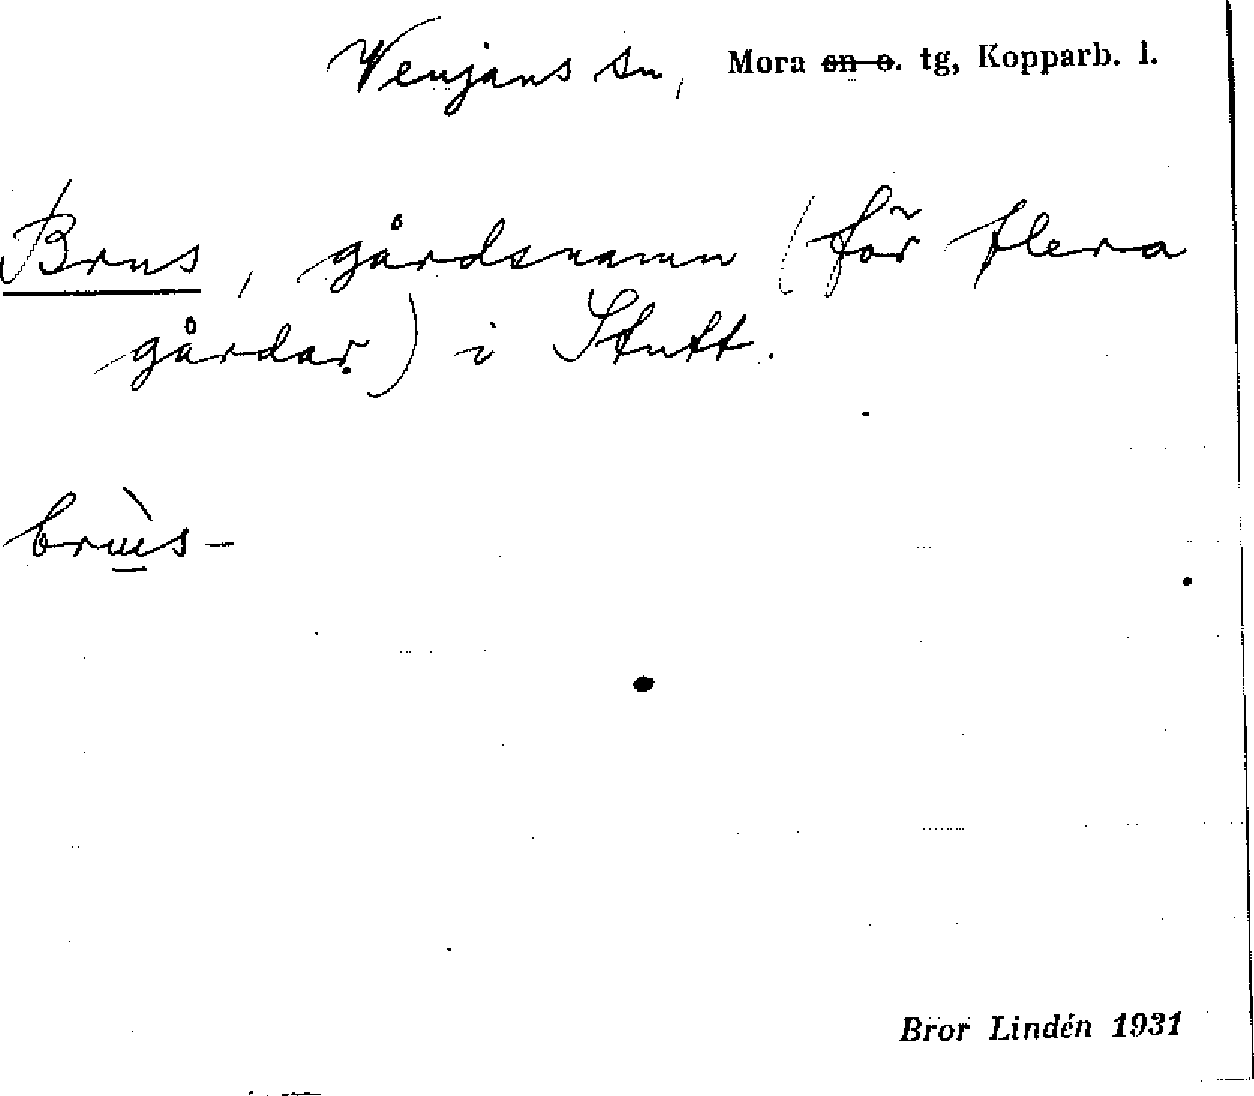 Venjans sn, Mora sn o. tg, Kopparb. l.
Brus, gårdsnamn (för flera
gårdar) i Stutt.
brùs-
Bror Lindén 1931